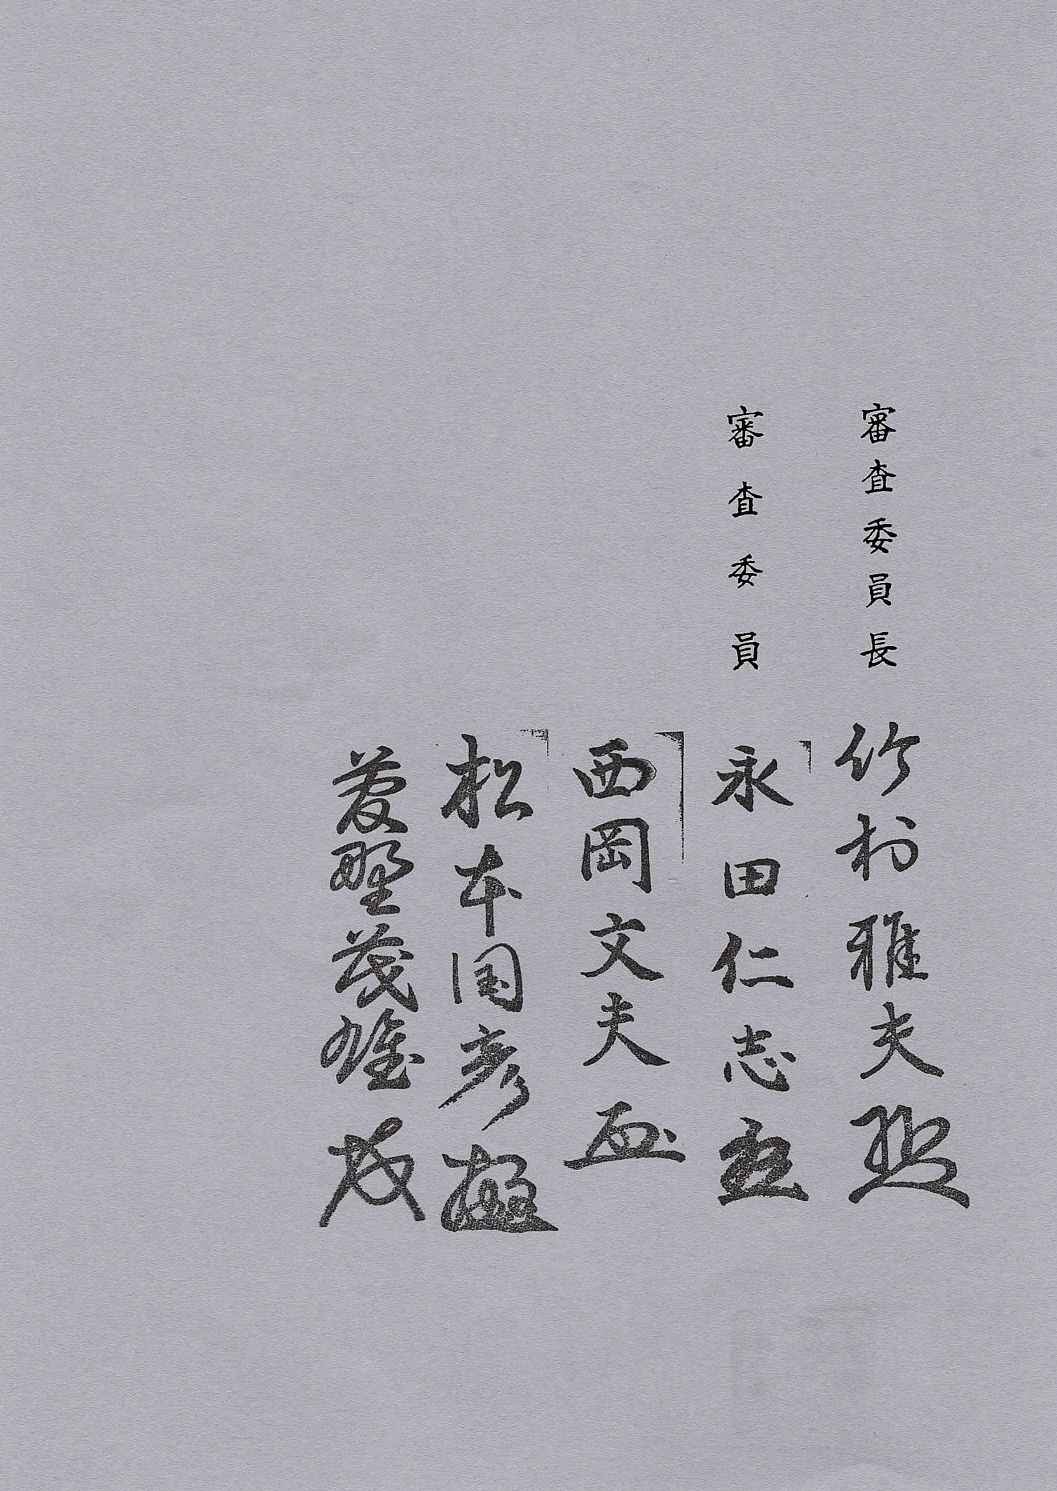 審査委員長 竹村雅夫
審査委員 永田仁志
西岡文夫
松本国彦
菱野茂雄